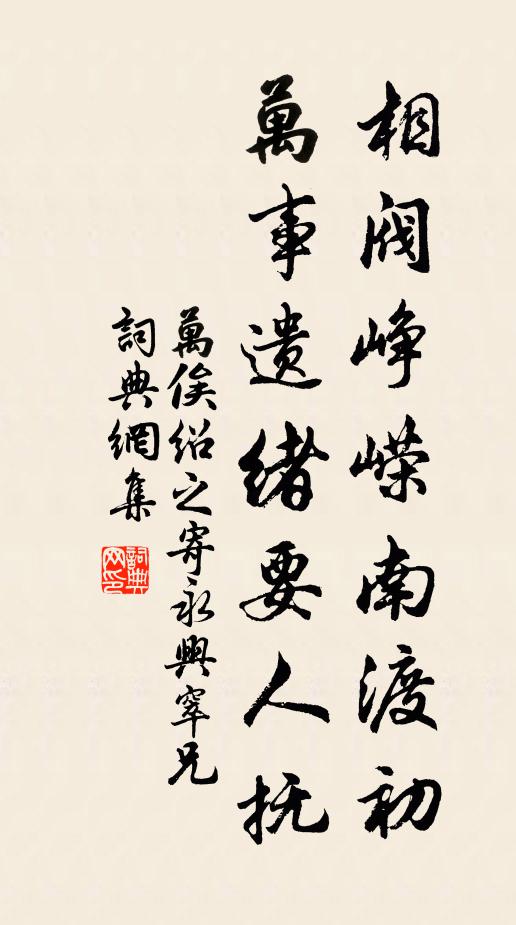 相閥峥嵘南渡初
萬事遗绪要人抚
萬俟绍之寄永興宰兄
詞典網集
詞典网印